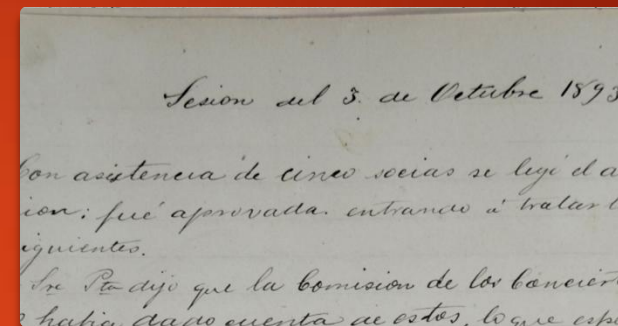 Sesion del 3 de Octubre 1893
Con asistencia de cinco socias se leyó el a
ion; fué aprovada. entrando á tratar l
iguientes.
Sra Pta dijo que la Comision de los Concier
habia dado cuenta de estos, lo que espe